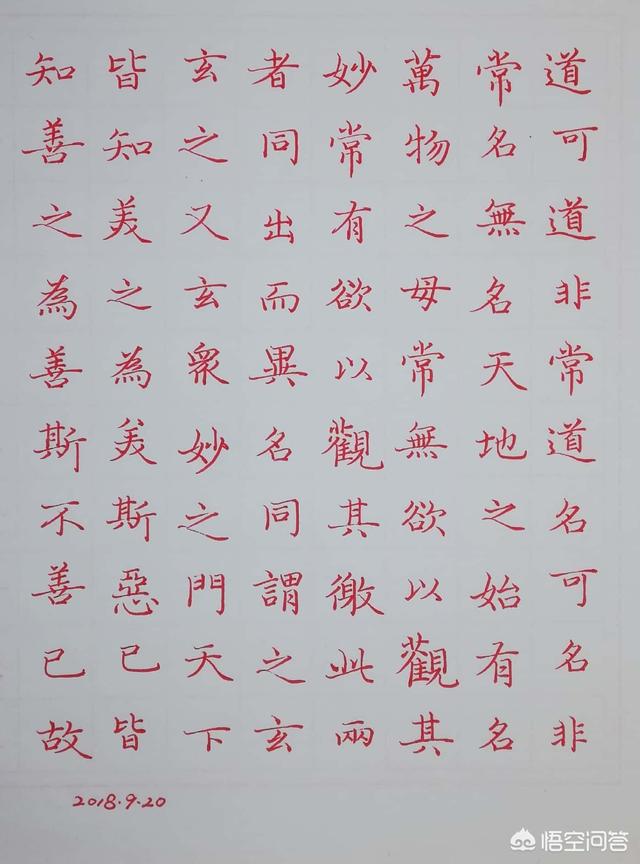 道可道非常道名可名非
常名無名天地之始有名
萬物之母常無欲以觀其
妙常有欲以觀其徼此兩
者同出而異名同謂之玄
玄之又玄衆妙之門天下
皆知美之為美斯惡已皆
知善之為善斯不善已故
2018.9.20
悟空问答